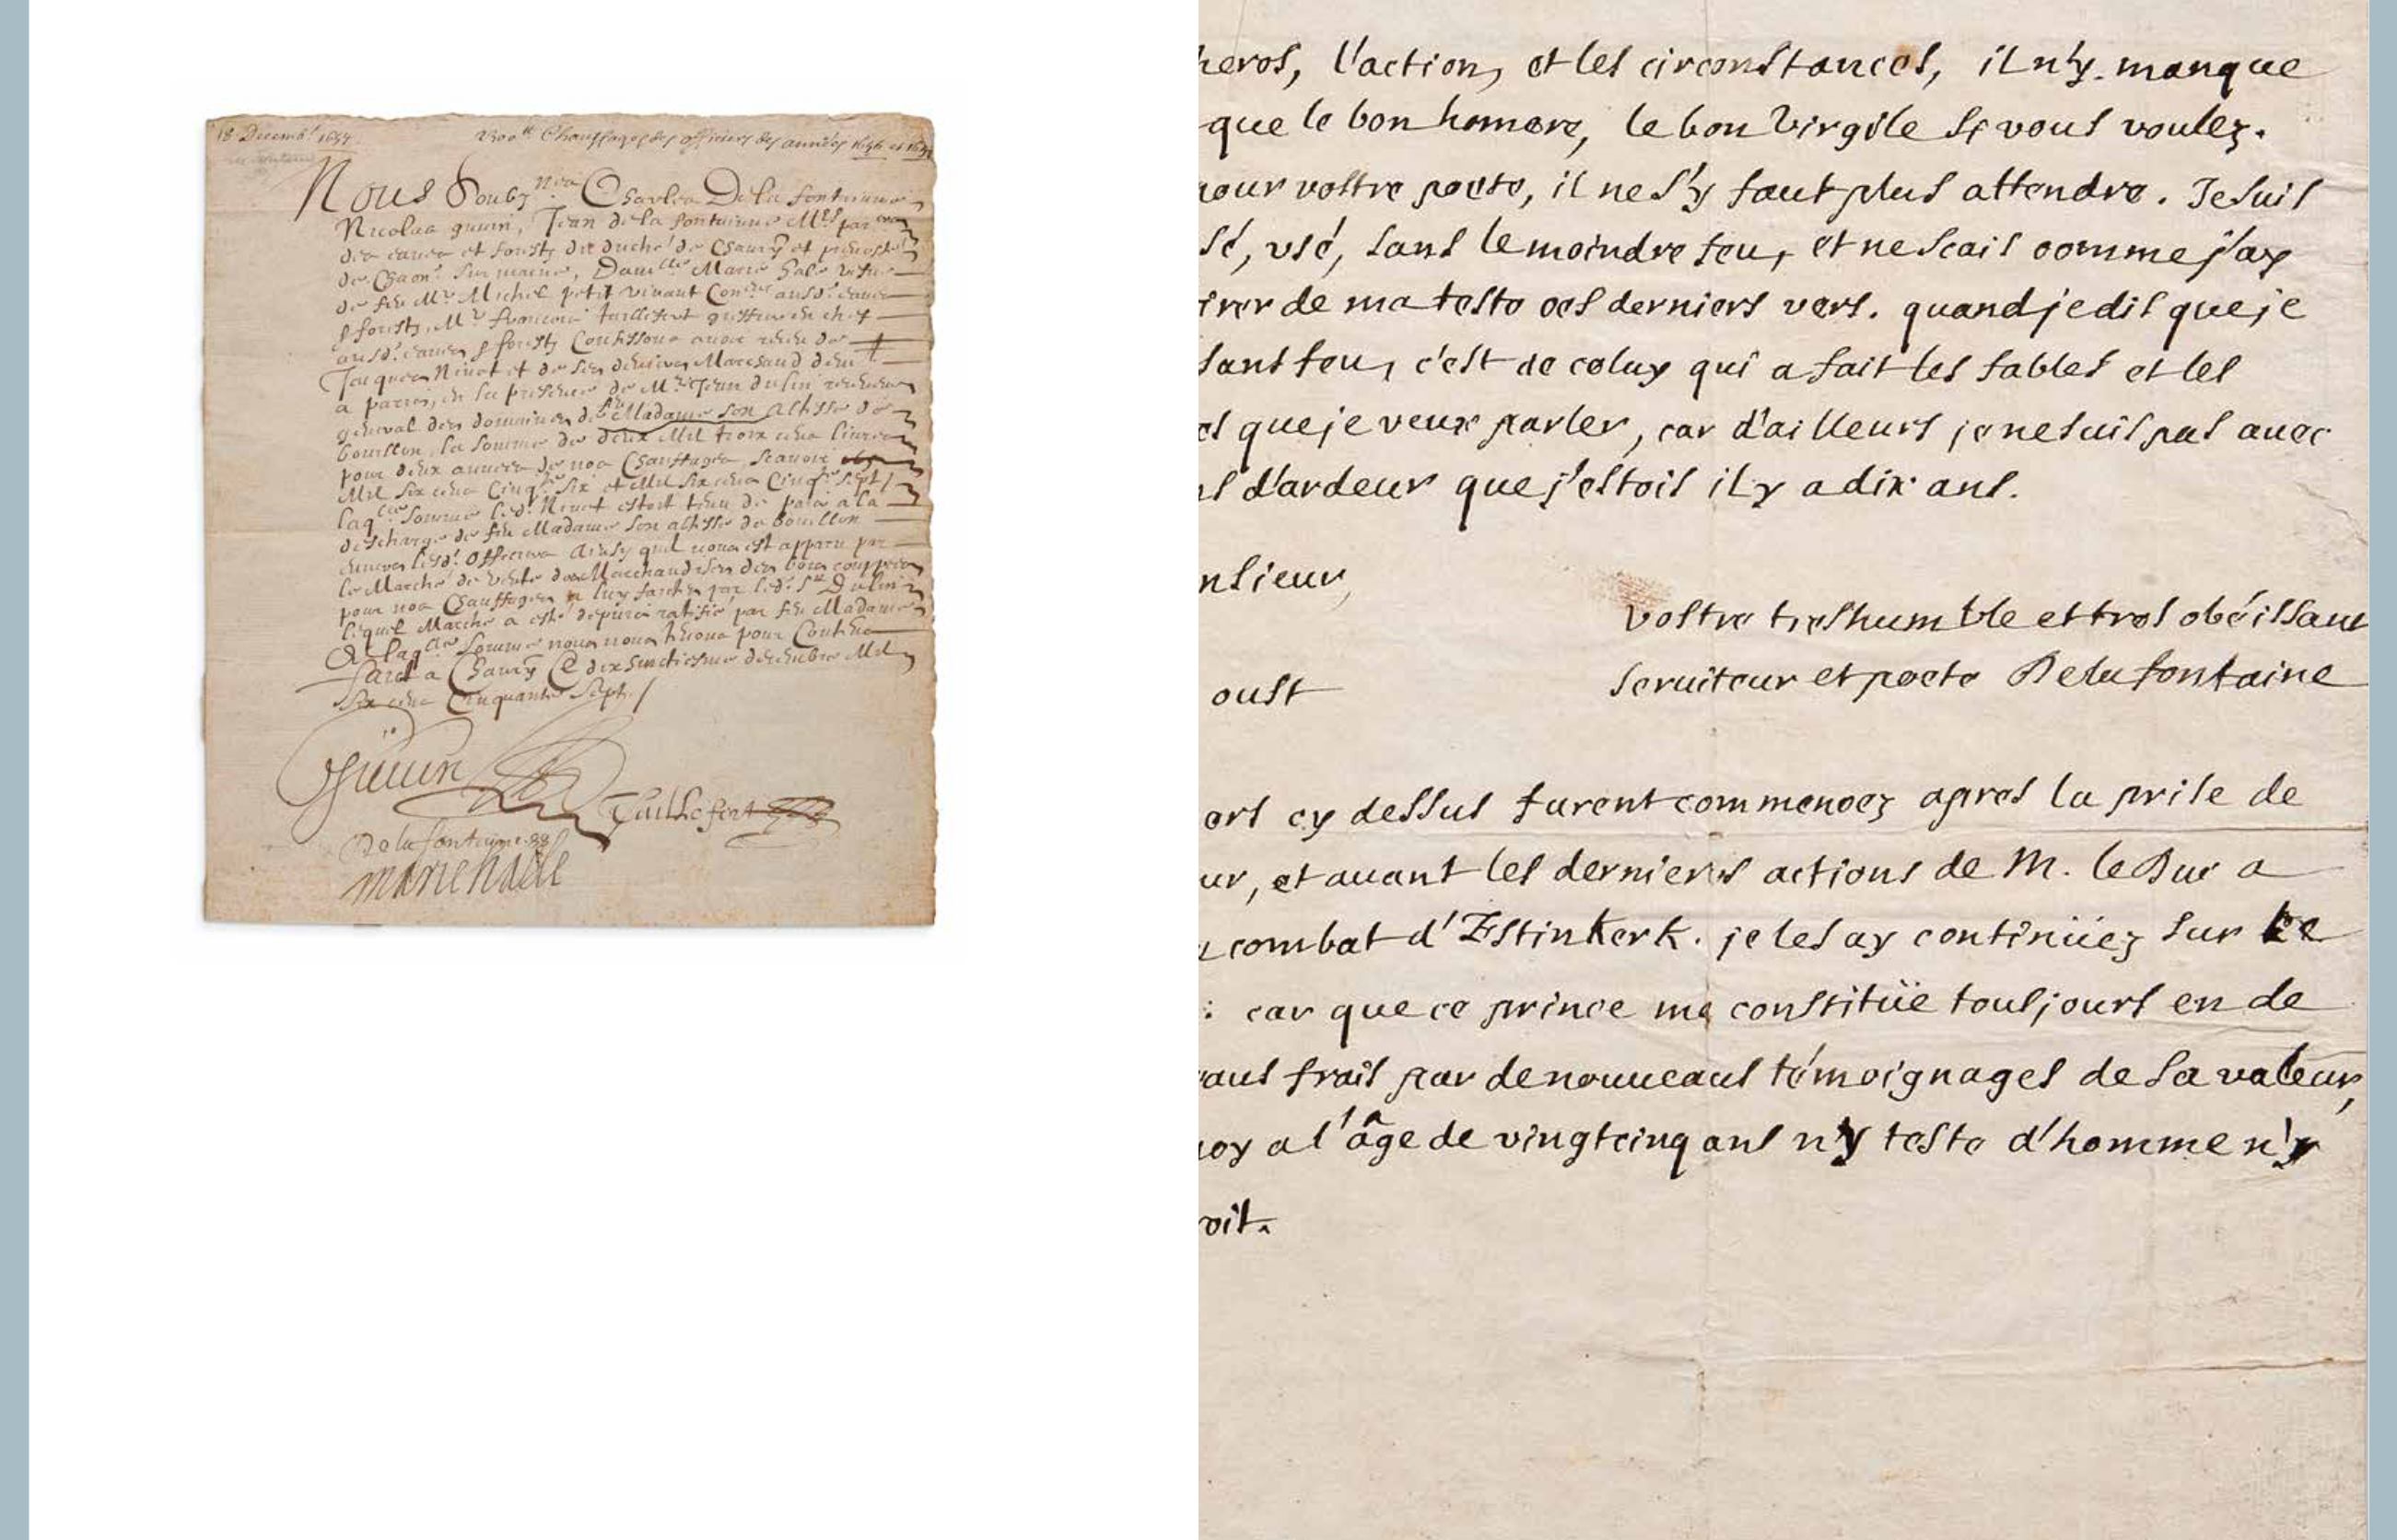 18 Decemb.^r 1657
2300^tt Chauffages des officiers des années 1656 et 1657
Nous Soubz^nez Charles De la fontainne
Nicolas guvin, Jean de la fontainne M^es par^ers
des eaues et forestz du duché de Chaury et preuosté
de Chaon^. sur marne, Dam^lle Marie hale vefue
de feu M^e Michel petit viuant Con^er ausd. eaues
& forestz, M^e francois tuillefert greffier en chef
ausd. eaues & forestz Confessons auoir receu de
Jacques Ninot et de ses deniers Marchand dem^t
a paris, en la presence de M^e Jean dulin receueur
general des domaines de feue Madame son Altesse de
bouillon, la somme de deux Mil trois cens liures
pour deux annees de nos Chauffages, scauoir
Mil six cens Cinq^te six et Mil six cens Cinq^te sept /
laq^lle somme led. Ninot estoit tenu de paier a la
descharge de feue Madame son altesse de bouillon
enuers lesd. Officiers Ainsy quil nous est apparu par
le Marché de vente des Marchandises des bois couppez
pour nos Chauffages a luy faite par led. S^r Dulin
lequel Marché a esté depuis ratifié par feue Madame
De laq^lle somme nous nous tenons pour Contens
faict a Chaury Ce dix decembre Mil
six cens Cinquante sept. /
Guvin
Tuillefert
De la fontaine
marie hale
heros, l'action, et les circonstances, il n'y manque
que le bon homere, le bon Virgile si vous voulez.
pour vostre poete, il ne s'y faut plus attendre. Je suis
sé, vsé, sans le moindre feu, et ne scais comme j'ay
irer de ma teste ces derniers vers. quand je dis que je
sans feu, c'est de celuy qui a fait les fables et les
es que je veux parler, car d'ailleurs je ne suis pas avec
s d'ardeur que j'estois il y a dix ans.
nsieur,
vostre tres humble et tres obéissant
oust
seruiteur et poete De la fontaine
ers cy dessus furent commencez apres la prise de
ur, et auant les dernieres actions de M. le Duc a
combat d'Estinkerk. je les ay continüez sur ce
: car que ce prince me constitüe tousjours en de
eaus frais par de nouueaus témoignages de sa valeur,
oy a l'âge de vingt cinq ans n'y teste d'homme n'y
oit.